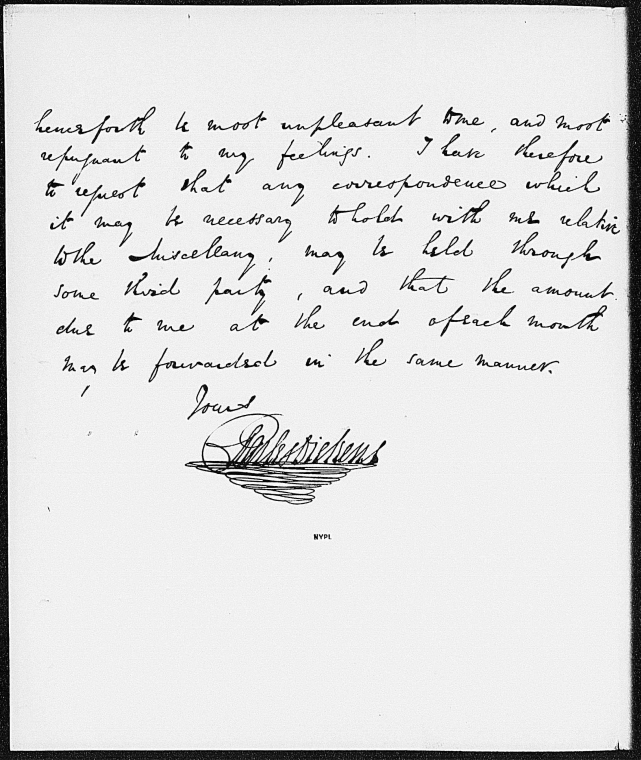 henceforth be most unpleasant to me, and most
repugnant to my feelings. I have therefore
to request that any correspondence which
it may be necessary to hold with me relative
to the Miscellany, may be held through
some third party, and that the amount
due to me at the end of each month
may be forwarded in the same manner.
Yours
Charles Dickens
NYPL